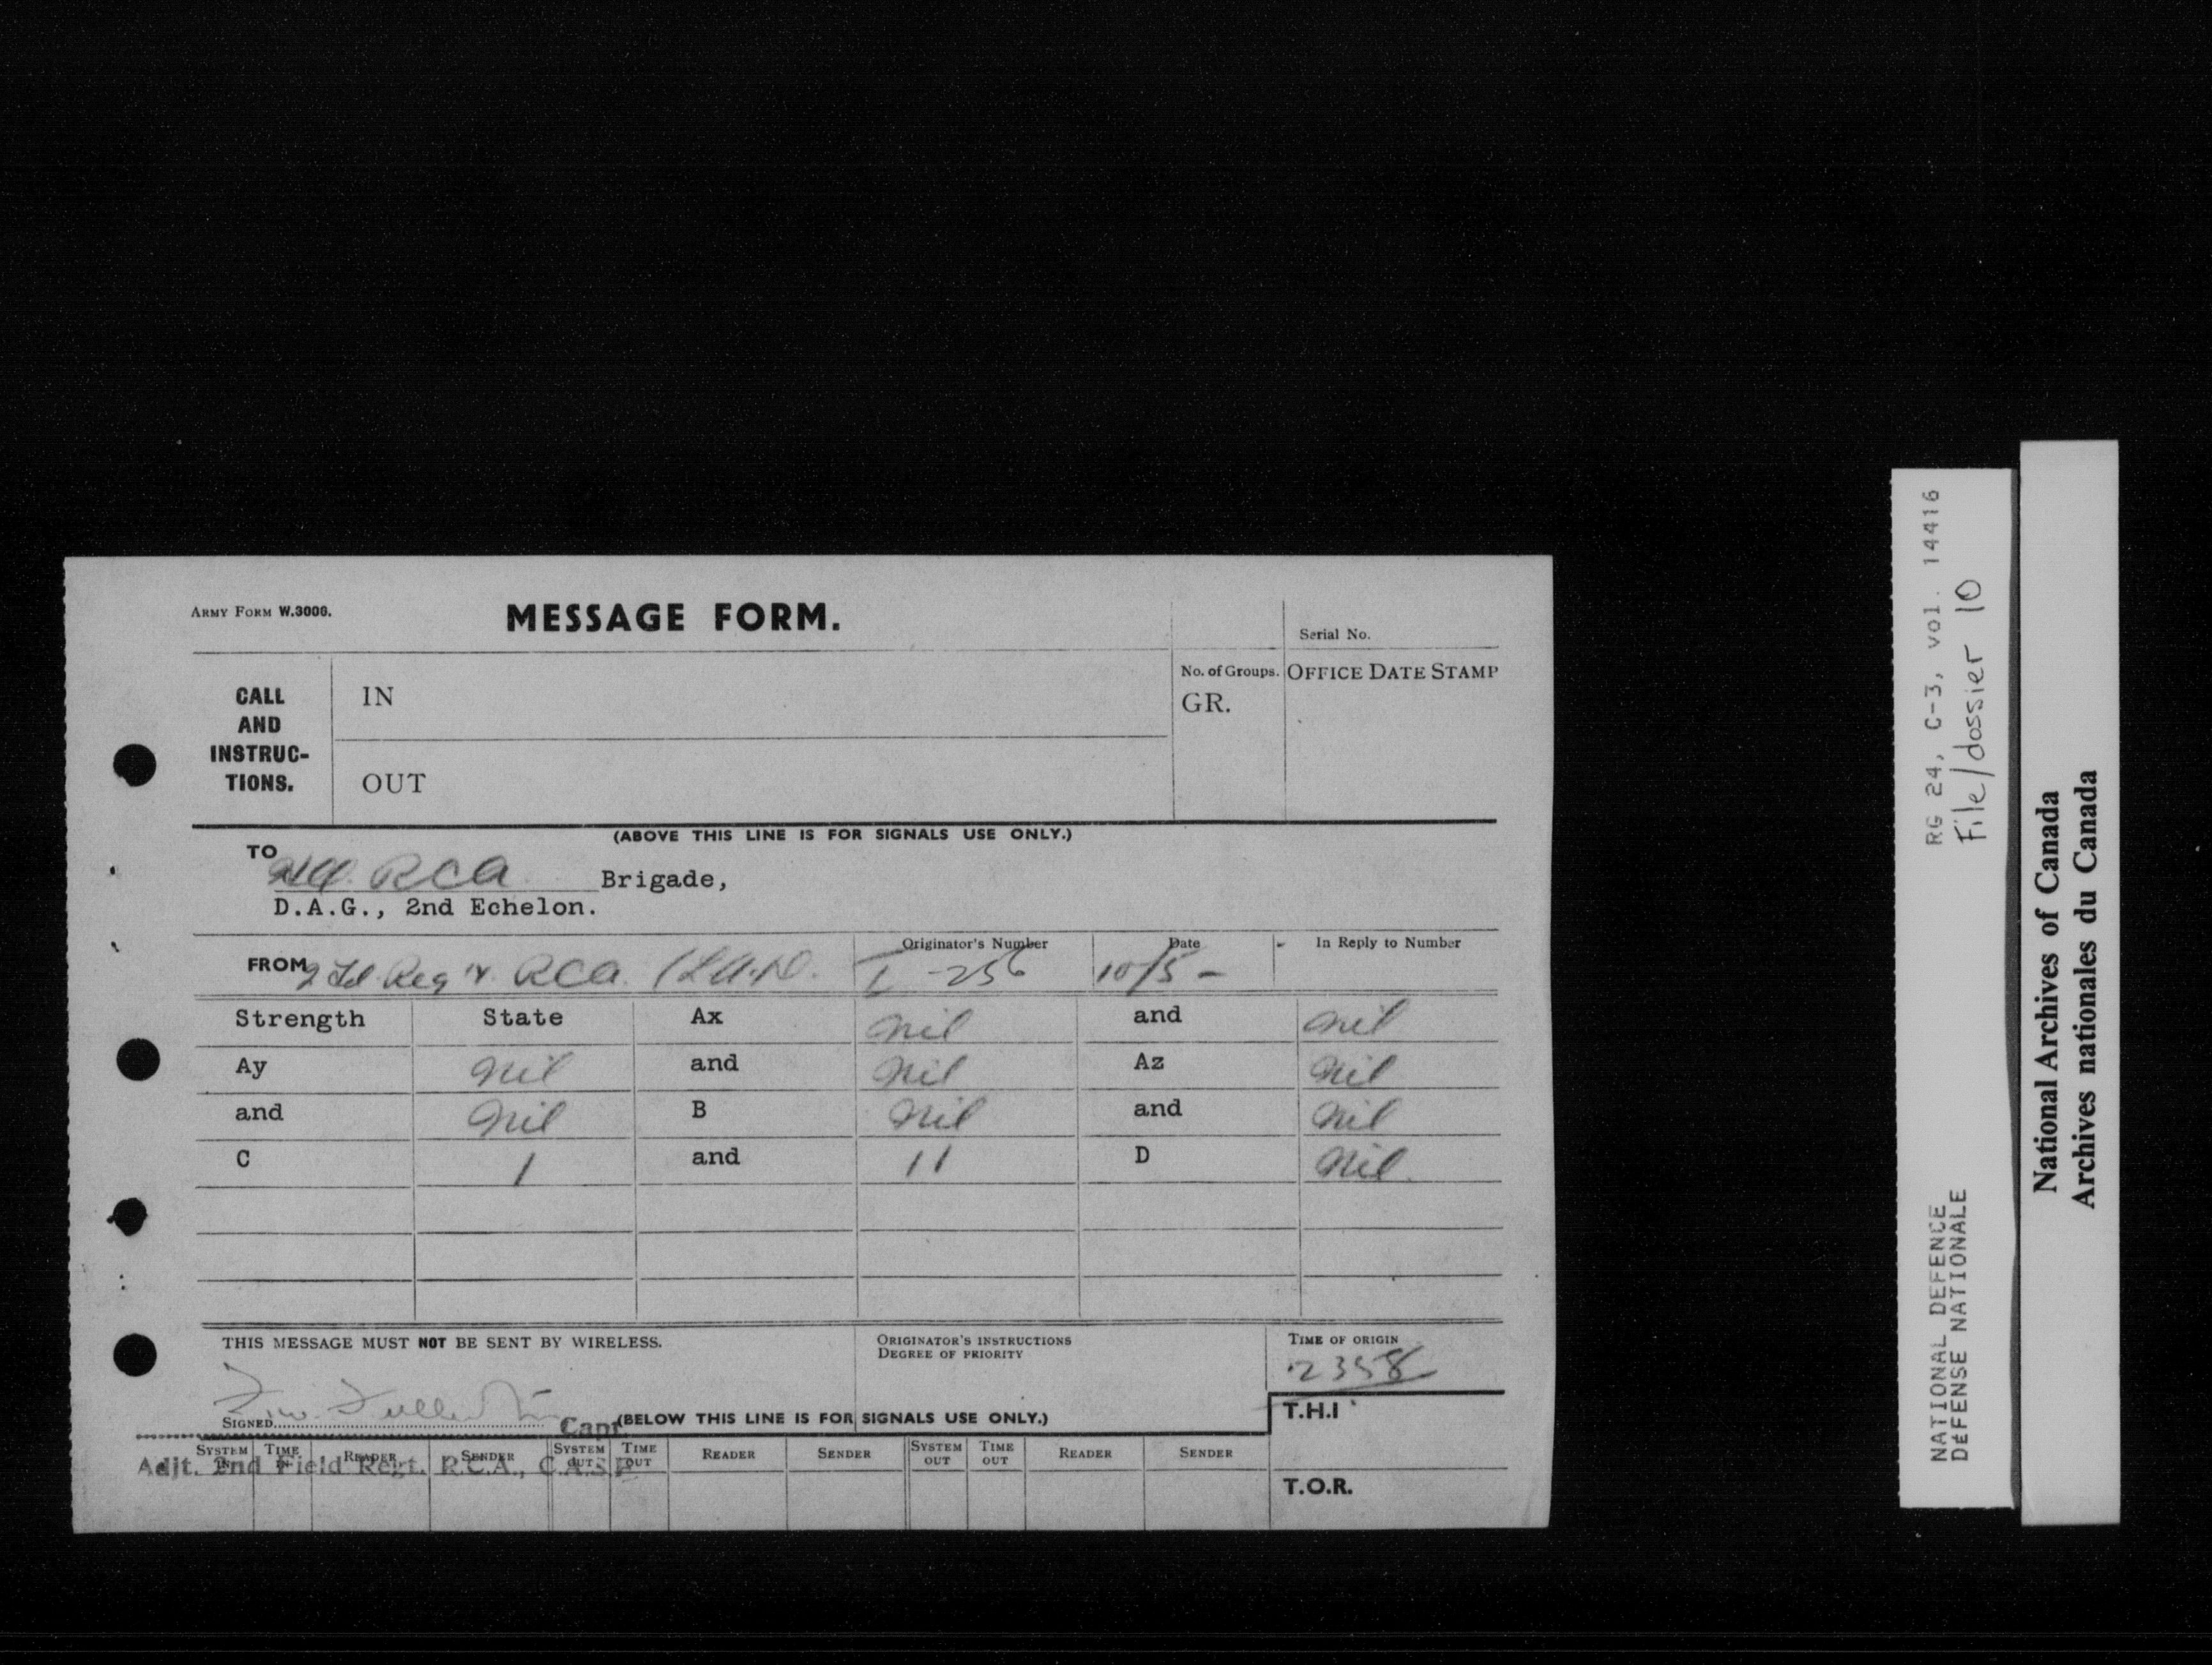 ARMY FORM W.3000.
MESSAGE FORM.
Serial No.
CALL AND INSTRUC-TIONS.
IN
OUT
No. of Groups.
GR.
OFFICE DATE STAMP
(ABOVE THIS LINE IS FOR SIGNALS USE ONLY.)
TO
RCA Brigade,
D.A.G., 2nd Echelon.
FROM 2 Fd. Reg't. RCA
Originator's Number
-256
Date
10/5 -
In Reply to Number
Strength State Ax nil and nil
Ay nil and nil Az nil
and nil B nil and nil
C 1 and 11 D nil.
THIS MESSAGE MUST NOT BE SENT BY WIRELESS.
ORIGINATOR'S INSTRUCTIONS
DEGREE OF PRIORITY
TIME OF ORIGIN
2358
SIGNED
Capt.
(BELOW THIS LINE IS FOR SIGNALS USE ONLY.)
T.H.I
SYSTEM IN TIME IN READER SENDER SYSTEM OUT TIME OUT READER SENDER SYSTEM OUT TIME OUT READER SENDER
Adjt. 2nd Field Regt. R.C.A., C.A.S.F.
T.O.R.
RG 24, C-3, vol. 14416
File/dossier 10
NATIONAL DEFENCE
DÉFENSE NATIONALE
National Archives of Canada
Archives nationales du Canada